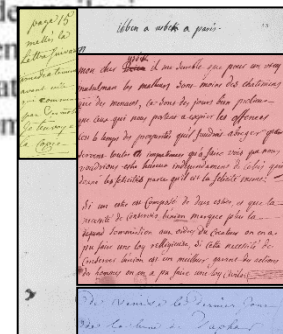 page 15
mettés la
Lettre suivante
avant celle
qui commence
par
je t'envoye
la Copie.
ibben a usbek a paris.
mon cher usbek il me semble que pour un vray
musulman les malheurs sont moins des chatimens
que des menaces, ce sont des jours bien pretieux
que ceux qui nous portent a expier les offences
c'est le temps des prosperités qu'il faudroit abreger que
servent toutes ces impatiences qu'a faire voir que nous
voudrions estre heureux independamment de celuy qui
donne les felicités parce qu'il est la felicité meme.
Si un estre est composé de deux estres, et que la
necessité de conserver l'union marque plus la
soumission aux ordres du createur on en a
pu faire une loy religieuse, si cette necessité de
conserver l'union est un meilleur garant des actions
des hommes on en a pu faire une loy civile.
de le dernier
de la lune de